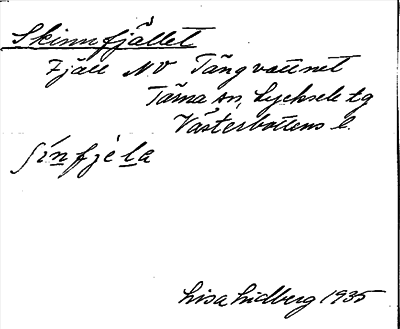 Skinnfjället
Fjäll NV Tängvattnet
Tärna sn, Lycksele tg
Västerbottens l.
ʃínfjèla
Lisa Lidberg 1935